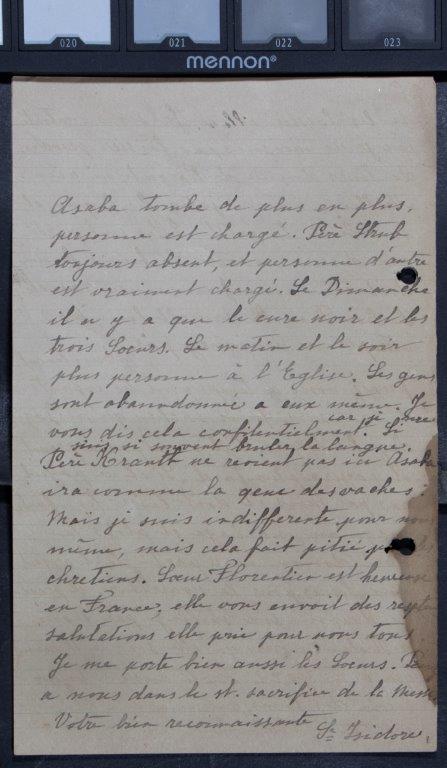 020 021 022 023
mennon®
Asaba tombe de plus en plus,
personne est chargé. Père Strub
toujours absent, et personne d'autre
est vraiment chargé. Le Dimanche
il n y a que le cure noir et les
trois Soeurs. Le matin et le soir
plus personne à l'Eglise. Les gens
sont abandonnée a eux même. Je
vous dis cela confidentielment. car je
suis si souvent bruler la langue. Si
Père Krauth ne revient pas ici Asaba
ira comme la geue des vaches.
Mais je suis indifferente pour
même, mais cela fait pitié
chretiens. Soeur Florentien est heureuse
en France, elle vous envoit des
salutations elle prie pour nous tous
Je me porte bien aussi les Soeurs.
a nous dans le st. sacrifice de la Messe
Votre bien reconnaissante
Sr Isidore,